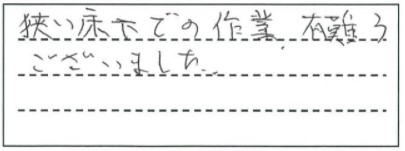 狭い床下での作業、有難う
ございました。